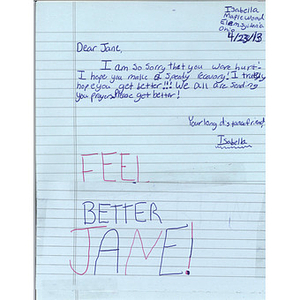 Isabella
Maplewood
Ohio
4/23/13
Dear Jane,
I am so sorry that you were hurt.
I hope you make a speedy recovery! I truly
hope you get better!!! We all are sending
you prayers Please get better!
Your long distance friend
Isabella
FEEL
BETTER
JANE!